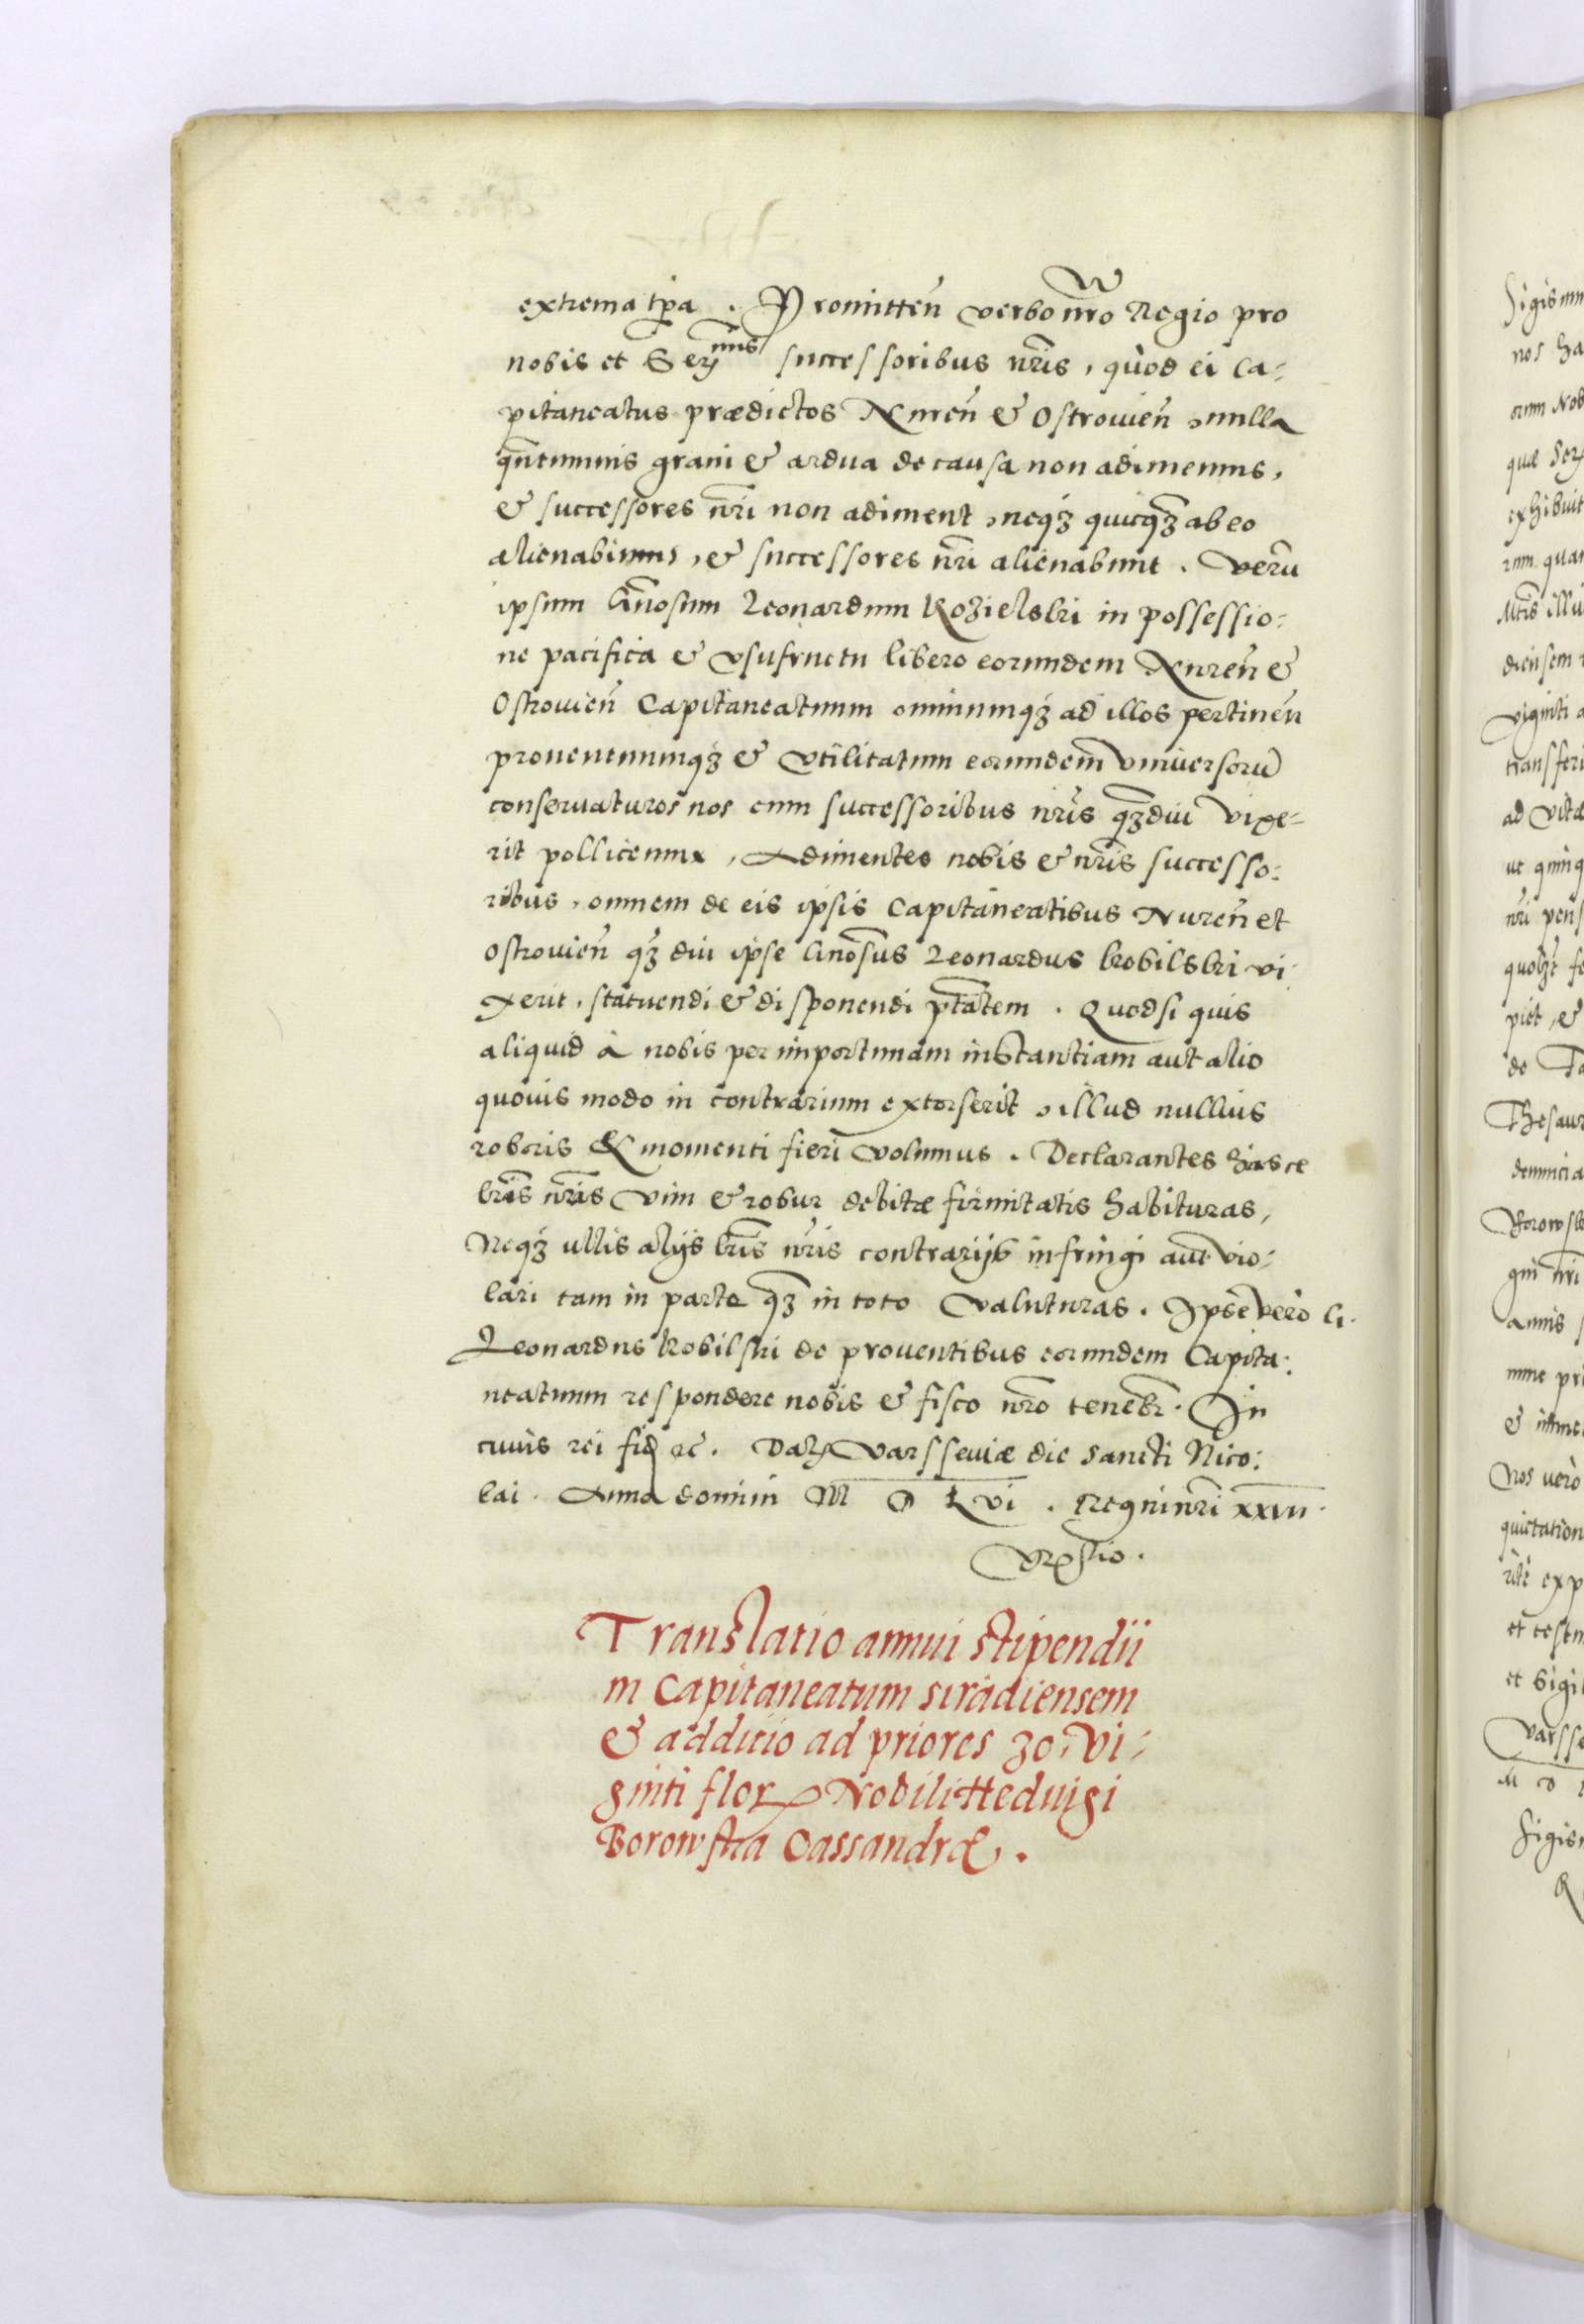 extrema tp̄a . Promitteñ verbo nr̄o Regio pro
nobis et Ser̄mis successoribus nr̄is, quòd ei Ca-
pitaneatus prædictos Nureñ & Ostrouieñ, nulla
graui & ardua de causa non adimemus,
& successores nr̄i non adiment, neqз quicqз̄ ab eo
alienabimus, & successores nr̄i alienabunt. Verū
ipsum Gn̄osum Leonardum Kozielski in possessio-
ne pacifica & vsufructu libero eorundem Nureñ &
Ostrouieñ Capitaneatuum omniumqз ad illos pertineñ
prouentuumqз & vtilitatum eorundem̄ vniuersorū
conseruaturos nos cum successoribus nr̄is qз̄diu vixe-
rit pollicemur, Adimentes nobis & nr̄is successo-
ribus, omnem de eis ipsis Capitaneatibus Nureñ et
Ostrouieñ qз̄ diu ipse Gn̄osus Leonardus kobilski vi-
xerit, statuendi & disponendi pt̄atem. Quodsi quis
aliquid à nobis per importunam instantiam aut alio
quouis modo in contrarium extorserit, illud nullius
roboris & momenti fieri volumus. Declarantes hasce
lr̄as nr̄as vim & robur debitæ firmitatis habituras,
Neqз ullis alijs lr̄is nr̄is contrarijs infringi aut vio-
lari tam in parte qз̄ in toto Valituras. Ipse vero G.
Leonardus kobilski de prouentibus eorundem Capita-
neatuum respondere nobis & fisco nr̄o tenebr̄. In
cuius rei fid etc. Dat Varsseuiæ die sancti Nico-
lai. Anno domini M D Lvi. Regni nr̄i xxvii.
Translatio annui stipendii
in Capitaneatum siradiensem
& additio ad priores 30, vi-
ginti flor Nobili Heduigi
Borowska Cassandræ.